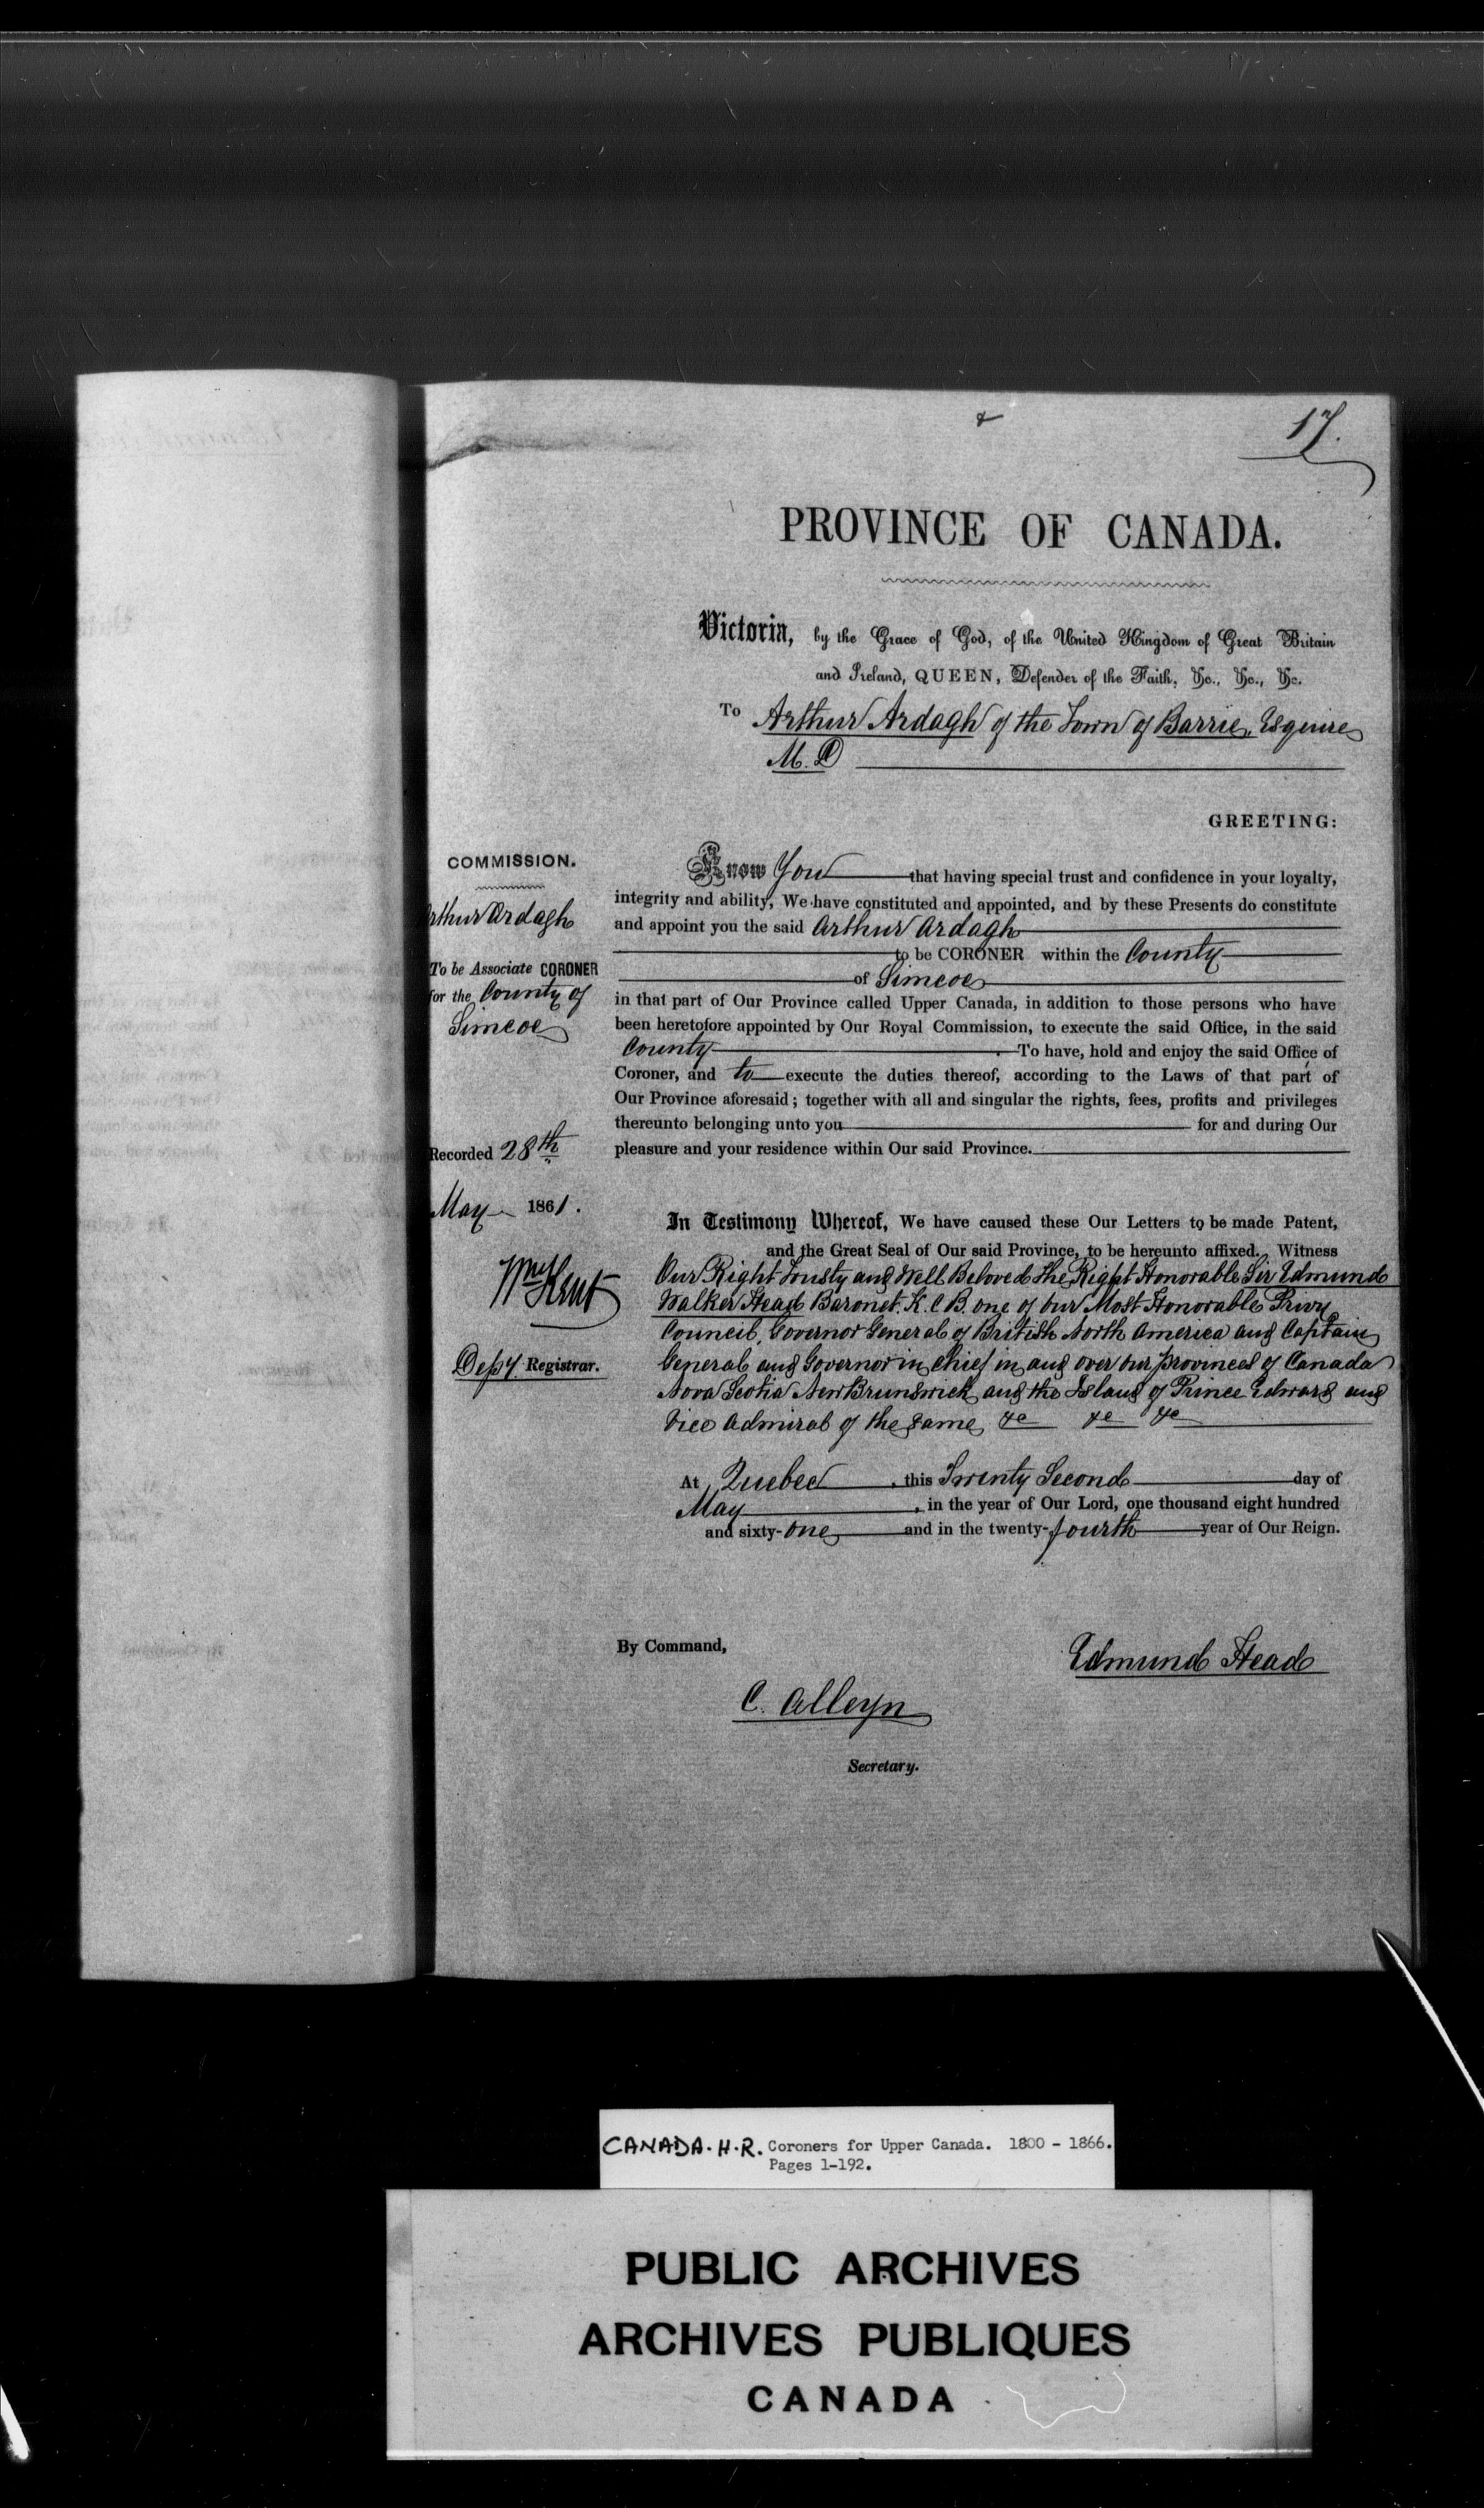 17.
PROVINCE OF CANADA.
Victoria, by the Grace of God, of the United Kingdom of Great Britain
and Ireland, QUEEN, Defender of the Faith, &c., &c., &c.
To Arthur Ardagh of the Town of Barrie, Esquire
M. D
GREETING:
COMMISSION.
Arthur Ardagh
To be Associate CORONER
for the County of
Simcoe
Recorded 28th
May 1861.
Wm Kent
Depy. Registrar.
Know You that having special trust and confidence in your loyalty,
integrity and ability, We have constituted and appointed, and by these Presents do constitute
and appoint you the said Arthur Ardagh
to be CORONER within the County
of Simcoe
in that part of Our Province called Upper Canada, in addition to those persons who have
been heretofore appointed by Our Royal Commission, to execute the said Office, in the said
County To have, hold and enjoy the said Office of
Coroner, and to execute the duties thereof, according to the Laws of that part of
Our Province aforesaid; together with all and singular the rights, fees, profits and privileges
thereunto belonging unto you for and during Our
pleasure and your residence within Our said Province.
In Testimony Whereof, We have caused these Our Letters to be made Patent,
and the Great Seal of Our said Province, to be hereunto affixed. Witness
Our Right Trusty and Well Beloved The Right Honorable Sir Edmund
Walker Head Baronet. K. C B. one of our Most Honorable Privy
Council, Governor General of British North America and Captain
General and Governor in Chief in and over our provinces of Canada
Nova Scotia New Brunswick and the Island of Prince Edward and
Vice Admiral of the same &c &c &c
At Quebec, this Twenty Second day of
May, in the year of Our Lord, one thousand eight hundred
and sixty-one and in the twenty-fourth year of Our Reign.
By Command,
Edmund Head
C. Alleyn
Secretary.
CANADA. H.R. Coroners for Upper Canada. 1800 - 1866.
Pages 1-192.
PUBLIC ARCHIVES
ARCHIVES PUBLIQUES
CANADA